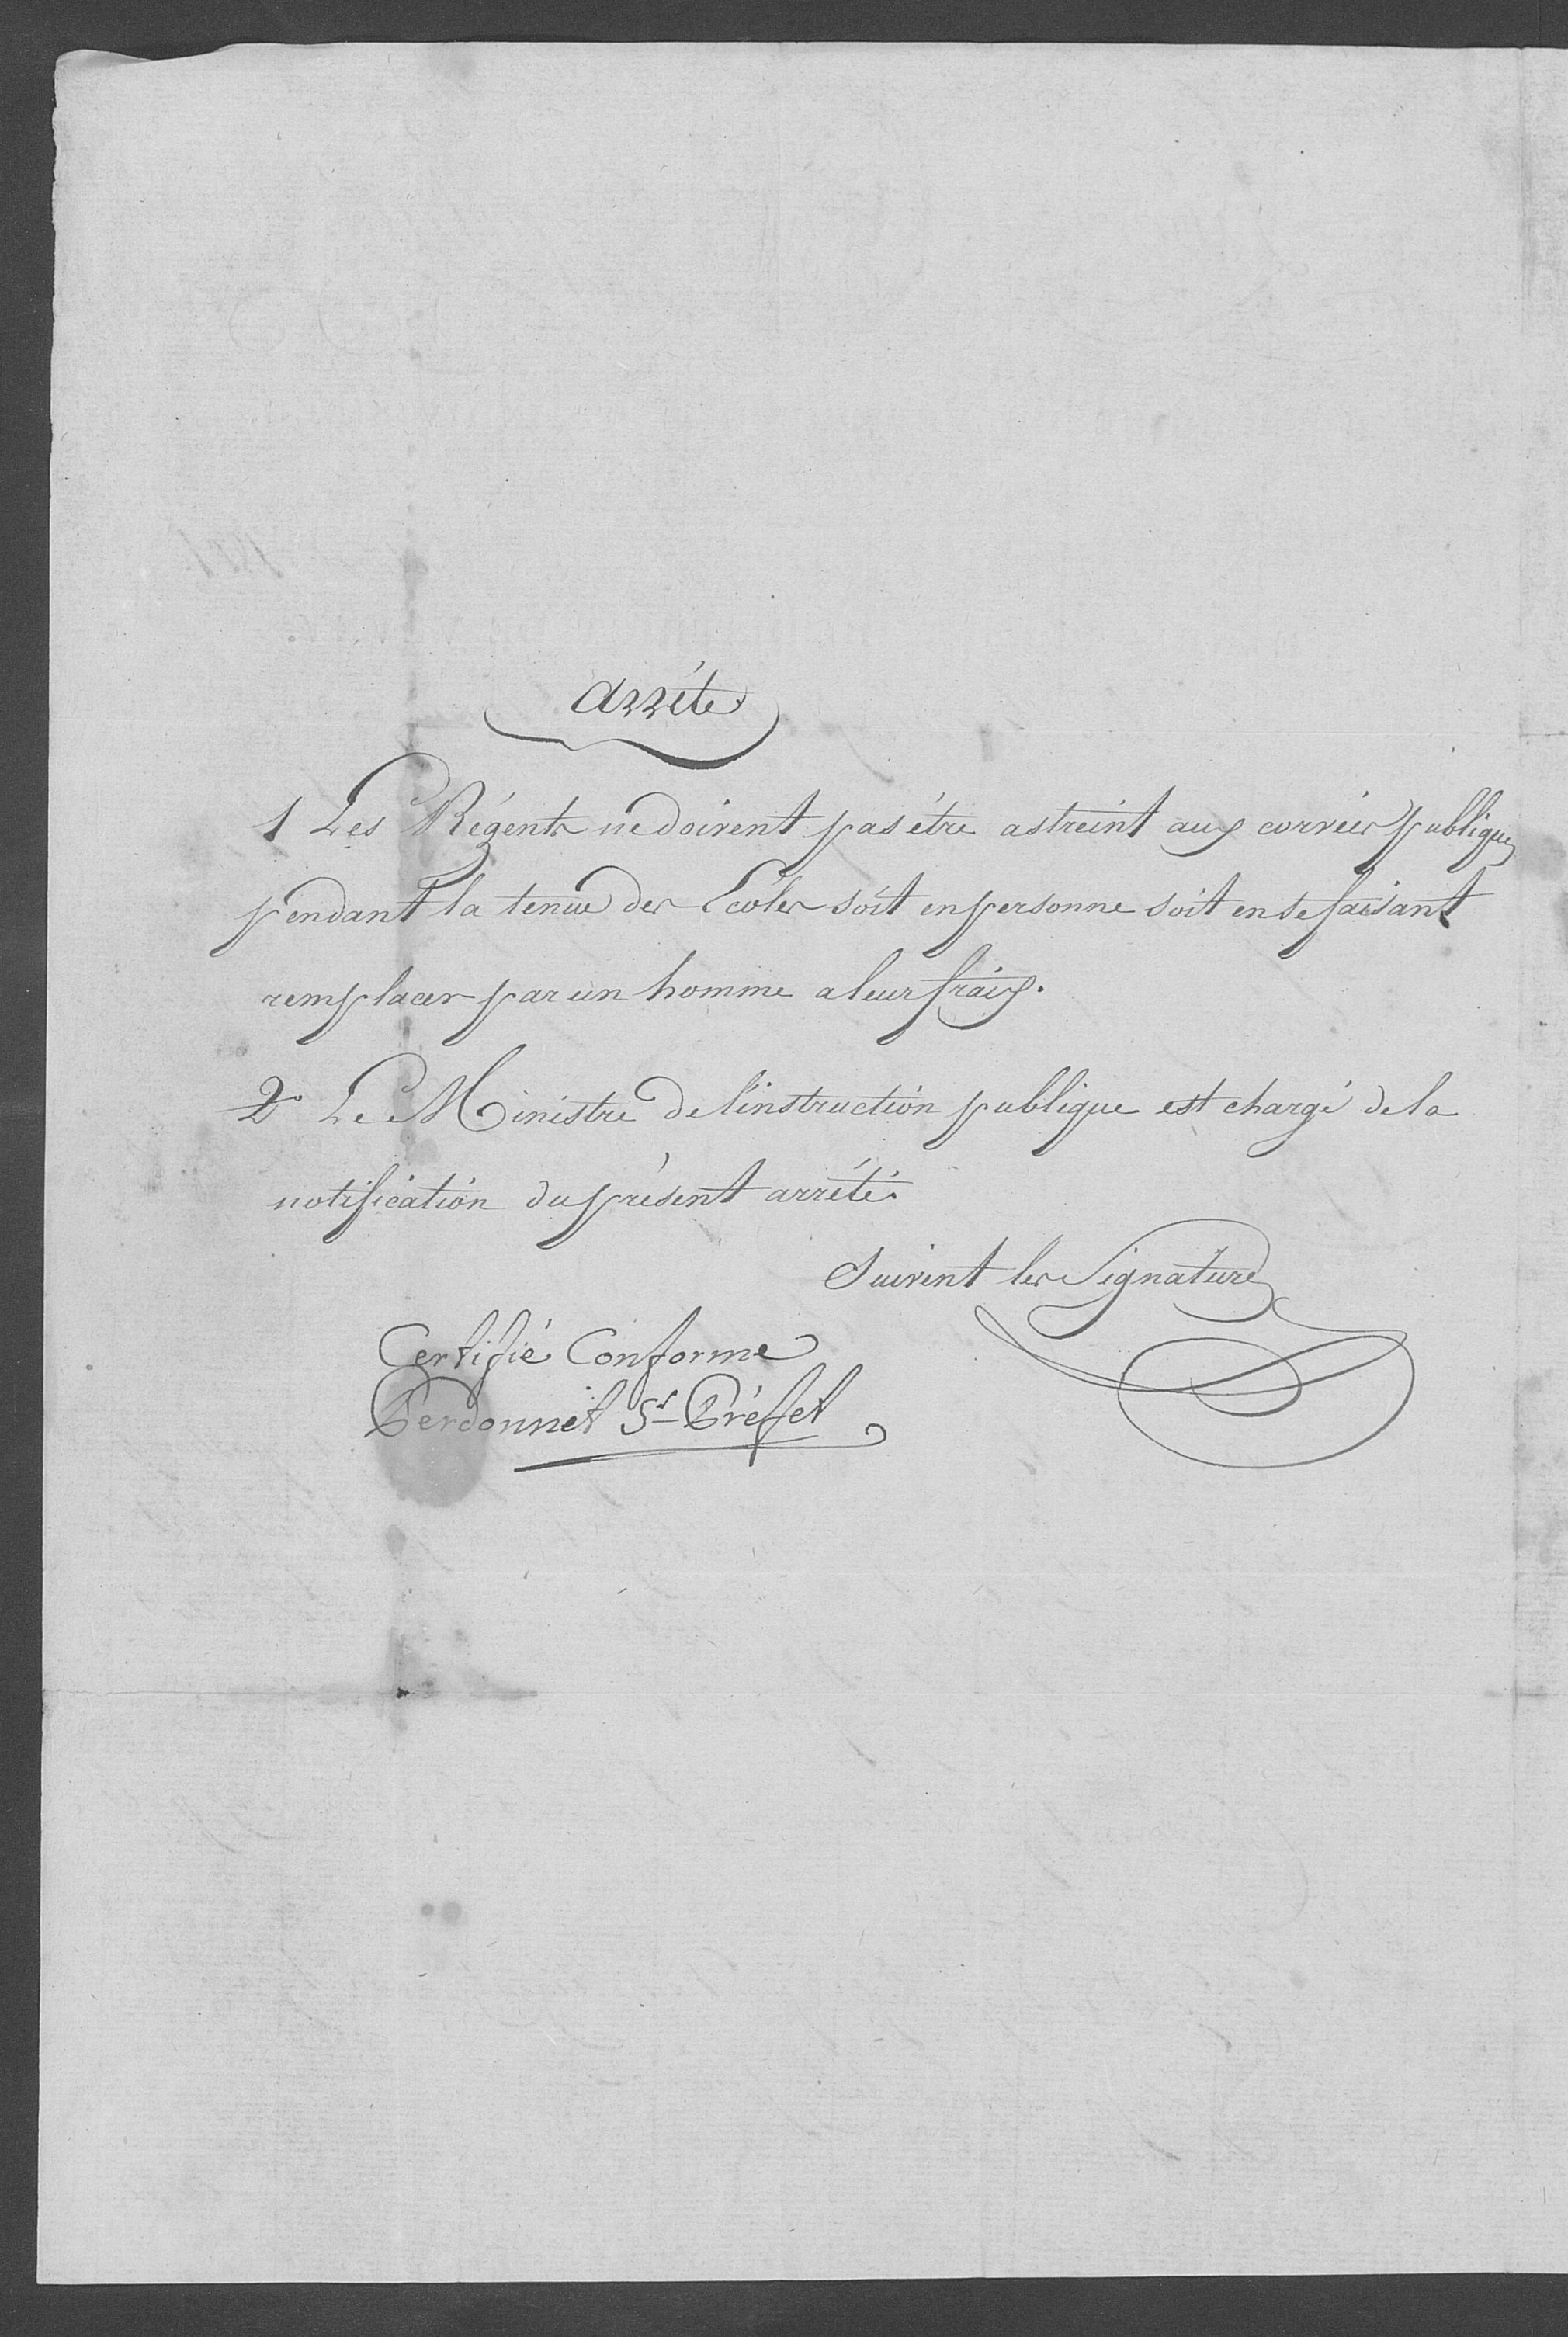 arrête
1 Les Régents ne doivent pas être astreint aux corvées publiques
pendant la tenue des Ecoles soit en personne soit en se faisant
remplacer par un homme a leur fraix.
2° Le Ministre de l'instruction publique est chargé de la
notification du présent arrêté.
Suivent les Signatures
Certifié Conforme
Perdonnet Ss Préffet